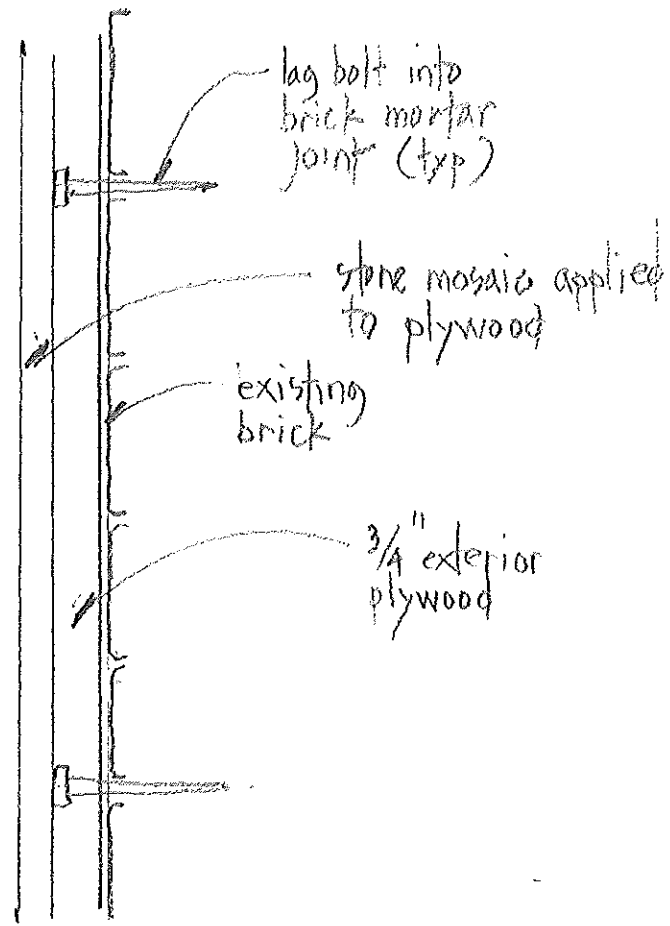 lag bolt into
brick mortar
joint (typ)
stone mosaic applied
to plywood
existing
brick
3/4" exterior
plywood